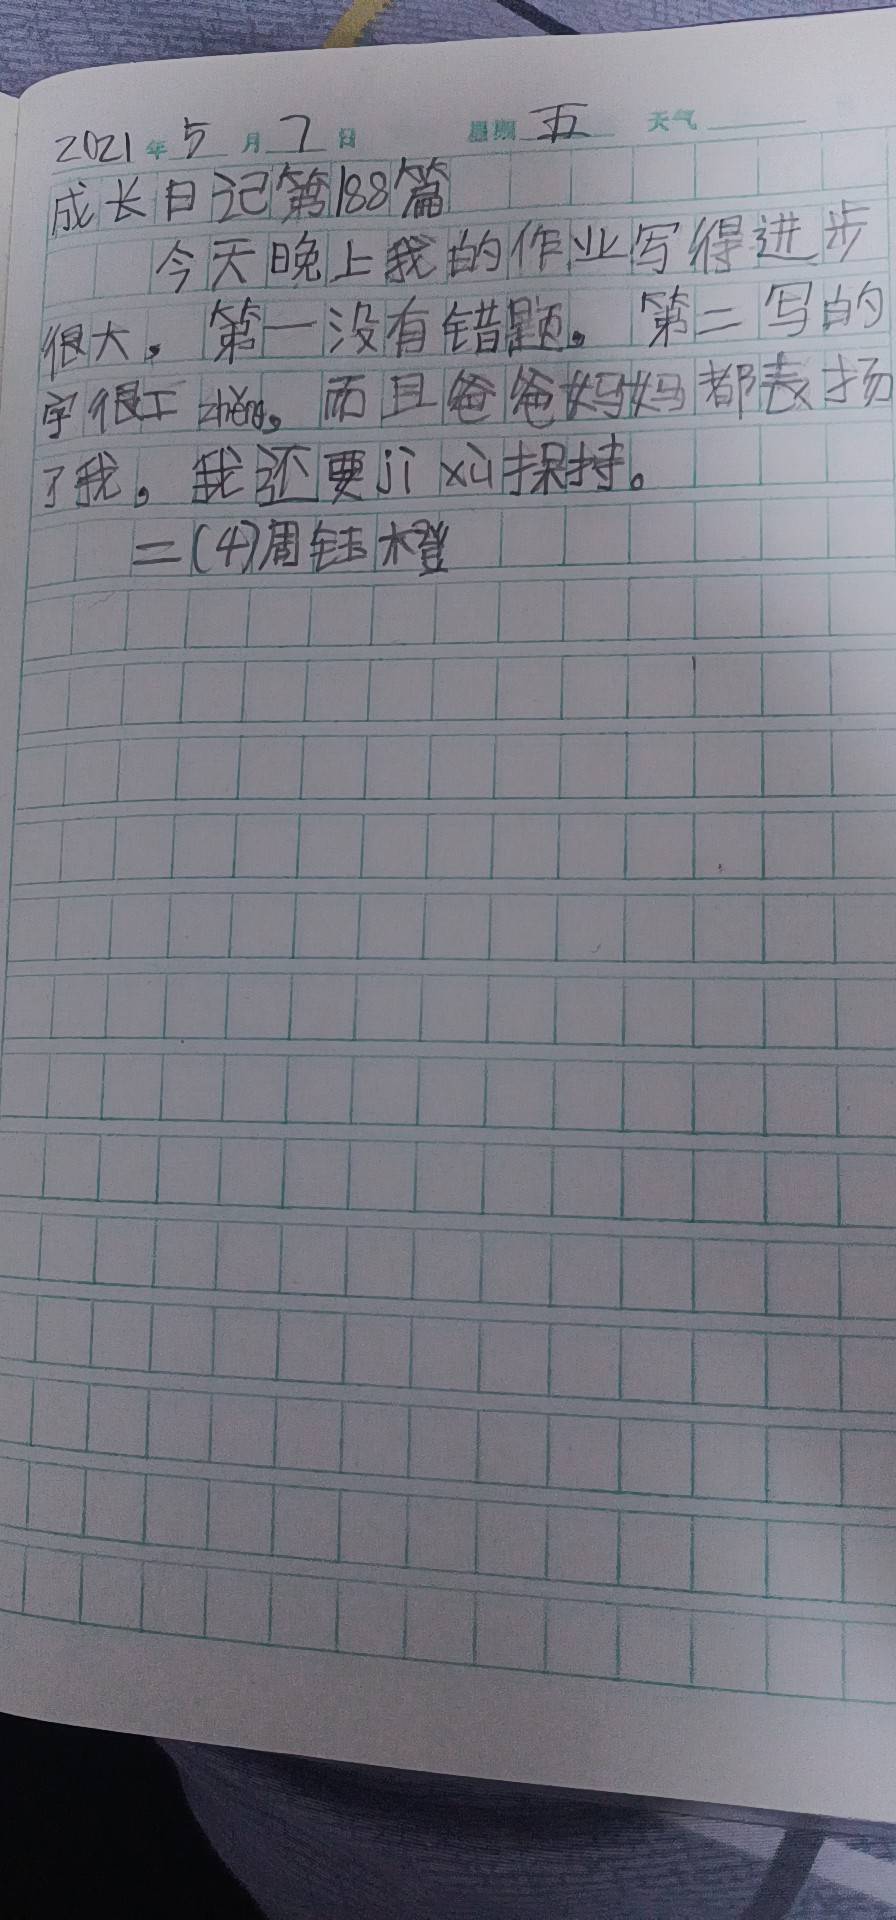 2021年5月7日 星期五 天气
成长日记第188篇
今天晚上我的作业写得进步
很大。第一没有错题。第二写的
字很工zhěng。而且爸爸妈妈都表扬
了我。我还要jì xù保持。
二(4)周钰橙